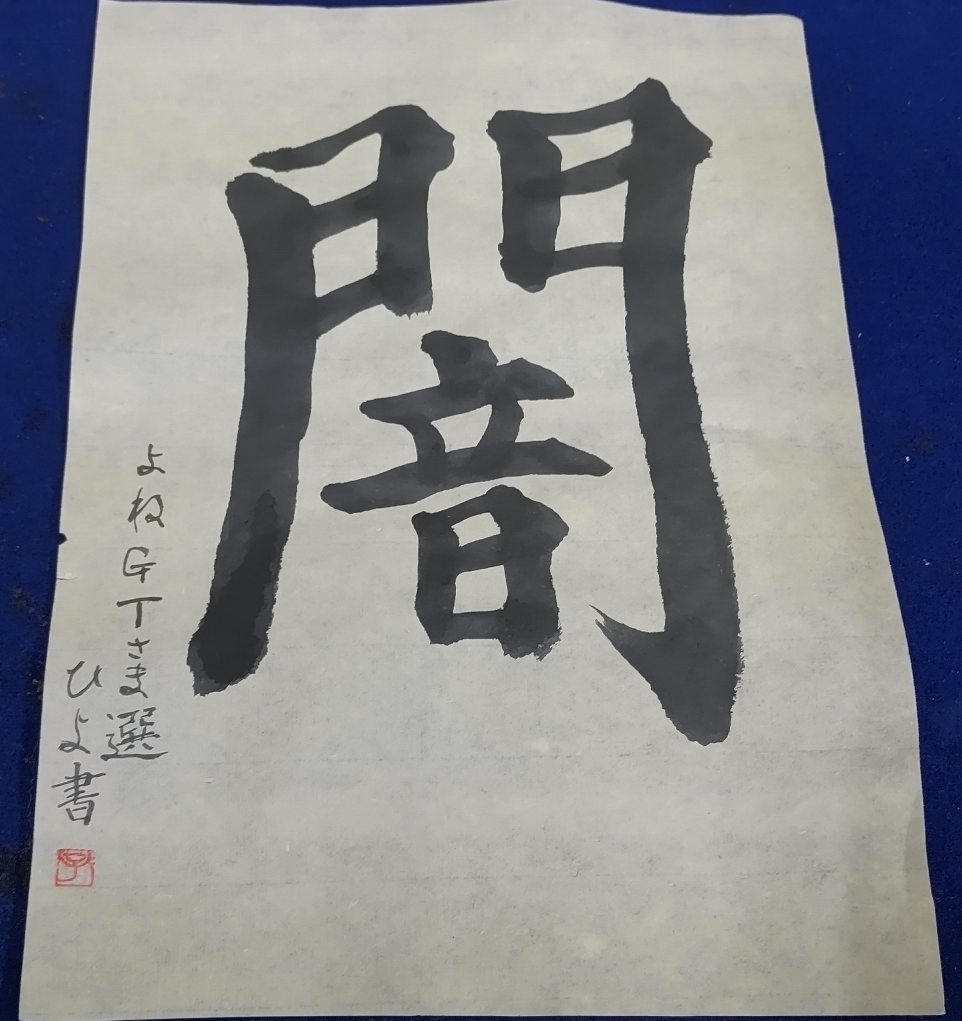 闇
よねGTさま選
ひよ書